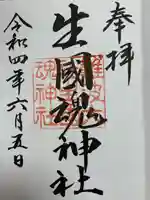 奉拝
生國魂神社
令和四年六月五日